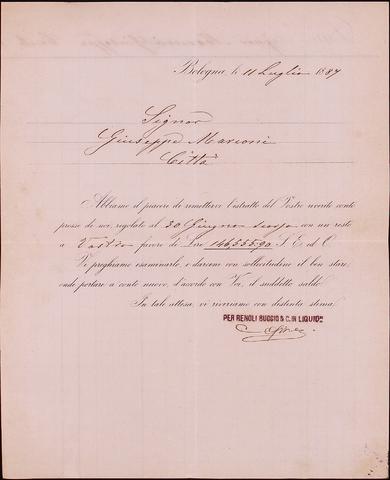 Bologna, li 11 Luglio 1887
Signor
Giuseppe Marconi
Città
Abbiamo il piacere di rimettervi l'estratto del Vostro ricordo conto
presso di noi, regolato al 30 Giugno scorso con un resto
a Vostro favore di Lire 146,555.90 S. E. ed O.
Vi preghiamo esaminarlo, e darcene con sollecitudine il ben stare,
onde portare a conto nuovo, d'accordo con Voi, il suddetto saldo.
In tale attesa, vi riveriamo con distinta stima
PER RENOLI BUGGIO & C. IN LIQUID.